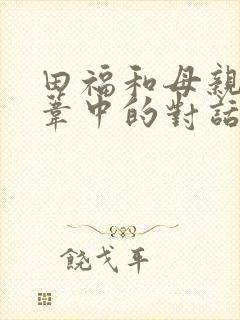 田福和母親
葦中的對話
饒戈平